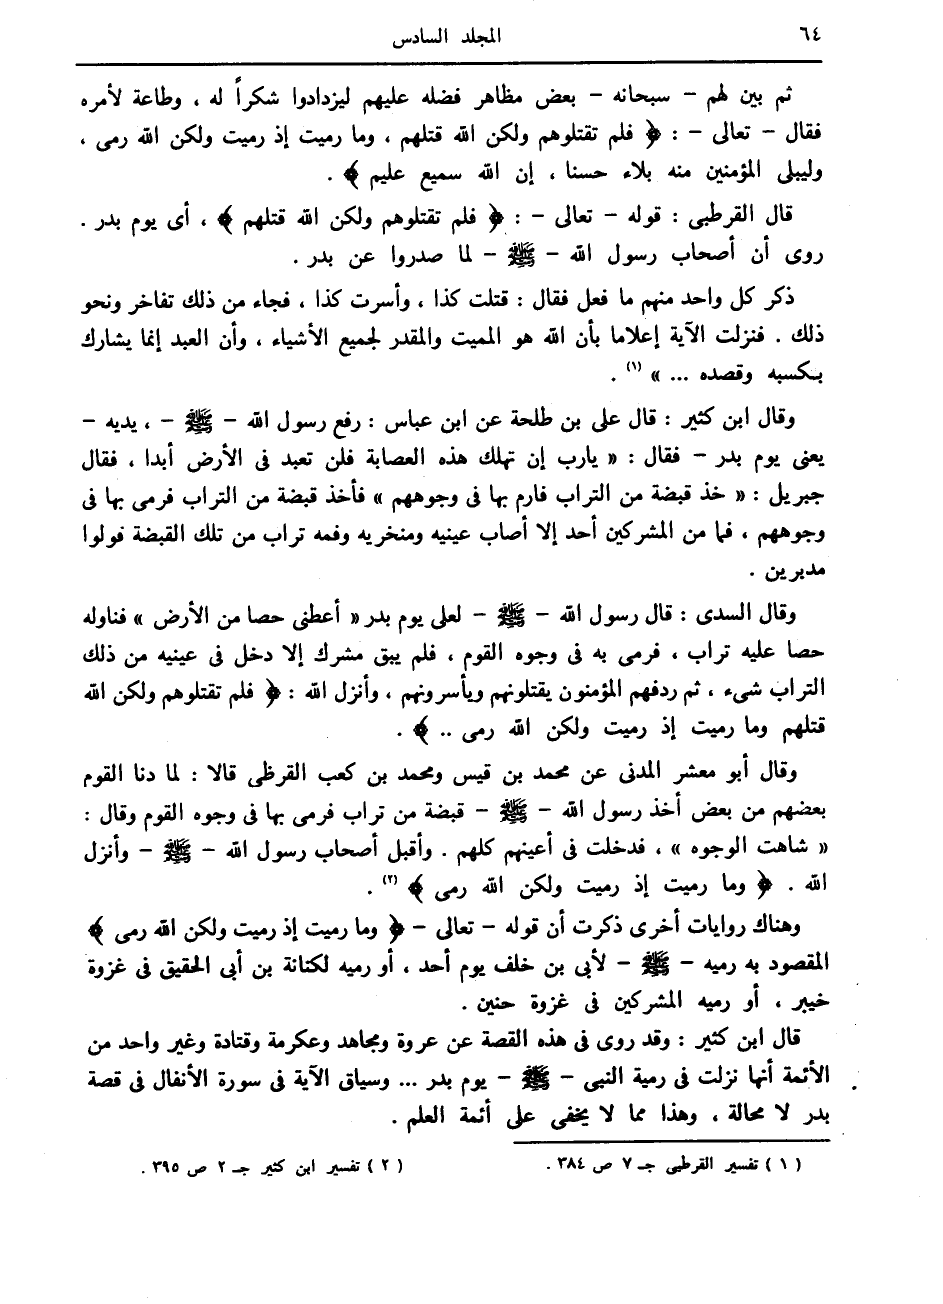 ٦٤ المجلد السادس
ثم بين لهم – سبحانه – بعض مظاهر فضله عليهم ليزدادوا شكراً له ، وطاعة لأمره
فقال – تعالى – : ﴿ فلم تقتلوهم ولكن الله قتلهم ، وما رميت إذ رميت ولكن الله رمى ،
وليبلى المؤمنين منه بلاء حسنا ، إن الله سميع عليم ﴾ .
قال القرطبى : قوله – تعالى – : ﴿ فلم تقتلوهم ولكن الله قتلهم ﴾ ، أى يوم بدر .
روى أن أصحاب رسول الله – ﷺ – لما صدروا عن بدر .
ذكر كل واحد منهم ما فعل فقال : قتلت كذا ، وأسرت كذا ، فجاء من ذلك تفاخر ونحو
ذلك . فنزلت الآية إعلاما بأن الله هو المميت والمقدر لجميع الأشياء ، وأن العبد إنما يشارك
بكسبه وقصده ... » (١) .
وقال ابن كثير : قال على بن طلحة عن ابن عباس : رفع رسول الله – ﷺ – ، يديه –
يعنى يوم بدر – فقال : « يارب إن تهلك هذه العصابة فلن تعبد فى الأرض أبدا ، فقال
جبريل : « خذ قبضة من التراب فارم بها فى وجوههم » فأخذ قبضة من التراب فرمى بها فى
وجوههم ، فما من المشركين أحد إلا أصاب عينيه ومنخريه وفمه تراب من تلك القبضة فولوا
مدبرين .
وقال السدى : قال رسول الله – ﷺ – لعلى يوم بدر « أعطنى حصا من الأرض » فناوله
حصا عليه تراب ، فرمى به فى وجوه القوم ، فلم يبق مشرك إلا دخل فى عينيه من ذلك
التراب شىء ، ثم ردفهم المؤمنون يقتلونهم ويأسرونهم ، وأنزل الله : ﴿ فلم تقتلوهم ولكن الله
قتلهم وما رميت إذ رميت ولكن الله رمى .. ﴾ .
وقال أبو معشر المدنى عن محمد بن قيس ومحمد بن كعب القرظى قالا : لما دنا القوم
بعضهم من بعض أخذ رسول الله – ﷺ – قبضة من تراب فرمى بها فى وجوه القوم وقال :
« شاهت الوجوه » ، فدخلت فى أعينهم كلهم . وأقبل أصحاب رسول الله – ﷺ – وأنزل
الله . ﴿ وما رميت إذ رميت ولكن الله رمى ﴾ (٢) .
وهناك روايات أخرى ذكرت أن قوله – تعالى – ﴿ وما رميت إذ رميت ولكن الله رمى ﴾
المقصود به رميه – ﷺ – لأبى بن خلف يوم أحد ، أو رميه لكنانة بن أبى الحقيق فى غزوة
خيبر ، أو رميه المشركين فى غزوة حنين .
قال ابن كثير : وقد روى فى هذه القصة عن عروة ومجاهد وعكرمة وقتادة وغير واحد من
الأئمة أنها نزلت فى رمية النبى – ﷺ – يوم بدر ... وسياق الآية فى سورة الأنفال فى قصة
بدر لا محالة ، وهذا مما لا يخفى على أئمة العلم .
( ١ ) تفسير القرطبى جـ ٧ ص ٣٨٤ . ( ٢ ) تفسير ابن كثير جـ ٢ ص ٣٩٥ .